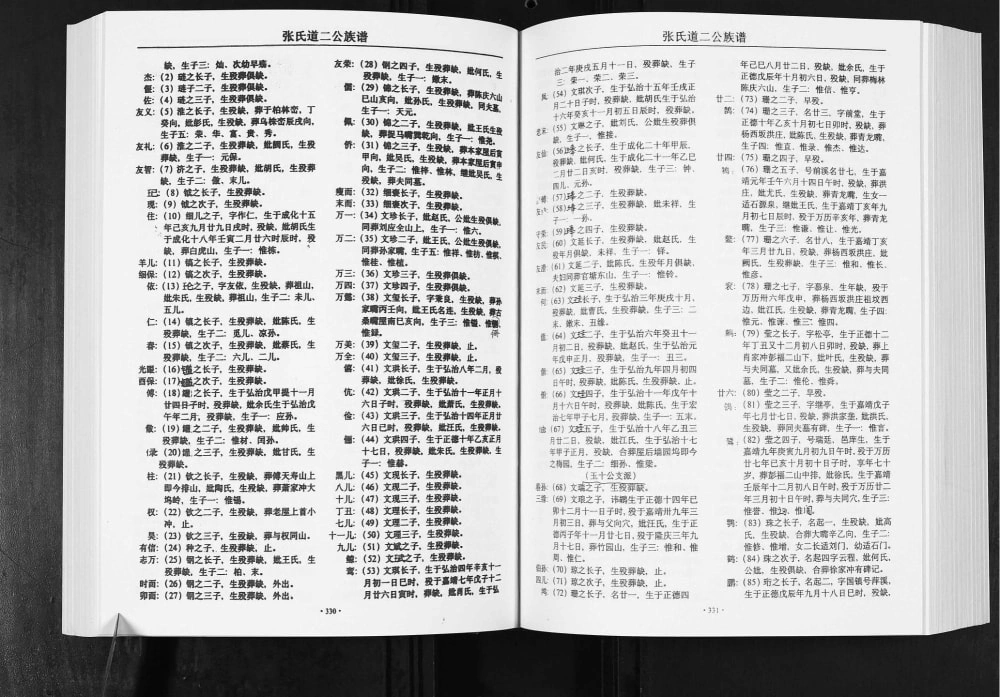 张氏道二公族谱
缺，生子三：灿、次幼早殇。
杰：(2) 琏之长子，生殁葬俱缺。
偃：(3) 琏子二子，生殁葬俱缺。
佐：(4) 琏之三子，生殁葬俱缺。
友义：(5) 淮之长子，生殁缺，葬于柏林峦，丁
癸向，妣彭氏，生殁缺，葬乌楝峦辰戌向，
生子五：荣、华、富、贵、秀。
友礼：(6) 淮之二子，生殁葬缺，妣阙氏，生殁
葬缺，生子一：元保。
友智：(7) 济之子，生殁葬缺，妣胡氏，生殁葬
缺，生子二：傲、末儿。
(8) 钺之长子，生殁葬缺。
现：(9) 钺之次子，生殁葬缺。
住：(10) 细儿之子，字作仁，生于成化十五
年己亥九月廿九日戌时，殁缺，妣胡氏生
于成化十八年壬寅二月廿六时辰时，殁
缺，葬白虎山，生子一：惟栋。
羊儿：(11) 镐之长子，生殁葬缺。
细保：(12) 镐之次子，生殁葬缺。
依：(13) 之子，字友依，生殁缺，葬祖山，
妣朱氏，生殁缺，葬祖山，生子二：未儿、
五儿。
仁：(14) 镇之长子，生殁葬缺，妣陈氏，生
殁葬缺，生子二：觅儿、凉孙。
春：(15) 镇之次子，生殁葬缺，妣蔡氏，生
殁葬缺，生子二：六儿、二儿。
(16) 之长子，生殁葬缺。
酉保：(17) 之次子，生殁葬缺。
傅：(18) 之长子，生于弘治戊甲提十一月
廿四日子时，殁葬缺，妣余氏生于弘治戊
午年二月，殁葬缺，生子一：应孙。
(19) 之二子，生殁葬缺，妣帅氏，生
殁葬缺，生子二：惟材、闰孙。
(20) 之三子，生殁葬缺，妣甘氏，生
殁葬缺。
柱：(21) 钦之长子，生殁缺，葬傅天寿山上
即今排山，妣陶氏，生殁缺，葬萧家冲大
坞岭，生子一：惟锡。
权：(22) 钦之二子，生殁缺，葬老屋上首小
冲，止。
昊：(23) 钦之三子，生殁缺，葬与权同山。
有信：(24) 种之子，生殁葬缺，止。
志万：(25) 钢之长子，生殁葬缺，妣王氏，生
殁葬缺，生子二：柏、末。
时而：(26) 钢之二子，生殁葬缺，外出。
卯而：(27) 钢之三子，生殁葬缺，外出。
友荣：(28) 钢之四子，生殁葬缺，妣何氏，生
殁葬缺，生子一：嫩末。
儒：(29) 锦之长子，生殁缺，葬陈庆六山
巳山亥向，妣孙氏，生殁葬缺，同夫墓，
生子一：天元。
佩：(30) 锦之二子，生殁葬缺，妣王氏生殁
缺，葬提马嘴巽乾向，生子一：惟尧。
侨：(31) 锦之三子，生殁缺，葬本家屋后寅
甲向，妣吴氏，生殁缺，葬本家屋后寅申
向，生子二：惟梓、惟林，继妣吴氏，生
殁缺，葬夫同墓。
瘦而：(32) 细赛长子，生殁葬缺。
末而：(33) 细赛次子，生殁葬缺。
万一：(34) 文珍长子，妣赵氏，公妣生殁俱缺，
同葬刘应全山上，生子一：惟六。
万二：(35) 文珍二子，妣王氏，公妣生殁俱缺，
同葬孙家嘴，生子五：惟祥、惟钫、惟棋、
惟桂、惟植。
万三：(36) 文珍三子，生殁葬俱缺。
万四：(37) 文珍四子，生殁葬俱缺。
万懿：(38) 文玺长子，字秉良，生殁缺，葬孙
家嘴丙壬向，妣王氏名连，生殁缺，葬古
桑嘴屋南巳亥向，生子三：惟锱、惟镏、
惟録。
万美：(39) 文玺二子，生殁葬缺，止。
万全：(40) 文玺三子，生殁葬缺，止。
(41) 文琪长子，生于弘治八年二月，殁
葬缺，妣徐氏，生殁葬缺。
伉：(42) 文琪二子，生于弘治十一年正月十
六日子时，殁葬缺，妣萧氏，生殁葬缺。
俭：(43) 文琪三子，生于弘治十四年正月廿
六日巳时，殁葬缺，妣汪氏，生殁葬缺。
俪：(44) 文琪四子，生于正德十年乙亥正月
十七日，殁葬缺，妣朱氏，生殁葬缺，生
子一：惟赫。
黑儿：(45) 文现长子，生殁葬缺。
八儿：(46) 文现二子，生殁葬缺。
十儿：(47) 文现三子，生殁葬缺。
丁丑：(48) 文理长子，生殁葬缺。
七儿：(49) 文理二子，生殁葬缺。
十一儿：(50) 文理三子，生殁葬缺。
九儿：(51) 文斌之子，生殁葬缺。
(52) 文之子，生殁葬缺。
鸾：(53) 文琪长子，生于弘治四年辛亥十一
月初一日巳时，殁于嘉靖七年戊子十二
月廿六日寅时，葬缺，妣肖氏，生于弘
·330·
张氏道二公族谱
治二年庚戌五月十一日，殁葬缺，生子
三：荣一、荣二、荣三。
凤：(54) 文琪次子，生于弘治十五年壬戌正
月二十日子时，殁葬缺，妣胡氏生于弘治
十六年癸亥十一月初五日辰时，殁葬缺。
(55) 文琳之子，妣刘氏，公妣生殁葬俱
缺，生子一：惟接。
(56) 之长子，生于成化二十年甲辰，
殁葬缺，妣何氏，生于成化二十一年乙巳
二月廿二日亥时，殁葬缺，生子三：钟、
四儿、元孙。
(57) 之二子，生殁葬缺。
(58) 之三子，生殁葬缺，妣未祥，生
子一：一孙。
(59) 之四子，生殁葬缺。
(60) 文延长子，生殁葬缺，妣赵氏，生
殁年月俱缺，未祥，生子一：铎。
(61) 文延二子，妣陈氏，生殁年月俱缺，
夫妇同葬官塘东山，生子一：惟铃。
(62) 文延三子，生殁葬缺。
何：(63) 文长子，生于弘治三年庚戌十月，
殁葬缺，妣曹氏，生殁葬缺，生子三：二
末、嫩末、丑缘。
(64) 文二子，生于弘治六年癸丑十一
月初二日，殁葬缺，妣赵氏，生于弘治元
年戊申正月，殁葬缺，生子一：丑三。
(65) 文三子，生于弘治九年四月初四
日午时，殁葬缺，妣陈氏，生殁葬缺，止。
(66) 文四子，生于弘治十一年戊午十
月十六日午时，殁葬缺，妣陈氏，生于宏
治七年甲子七月，殁葬缺，生子一：五末。
(67) 文五子，生于弘治十八年乙丑三
月廿二日，殁缺，妣江氏，生于弘治十七
年甲子正月，殁缺，合葬屋后墙园坞即今
之梅园，生子二：细孙、惟梁。
（五十公支派）
(68) 文瑞之子，生殁葬缺。
三璇：(69) 文琅之子，讳鹏生于正德十四年己
卯十二月十一日子时，殁于嘉靖卅九年三
月初三日，葬与父向穴，妣汪氏，生于正
德四子年十一月廿七日，殁于隆庆三年九
月十七日，葬竹园山，生子三：惟和、惟
周、惟仁。
(70) 琼之长子，生殁葬缺，止。
四儿：(71) 琼之次子，生殁葬缺，止。
鸿：(72) 珊之长子，名廿一，生于正德四
年己巳八月廿二日，殁缺，妣余氏，生于
正德戊辰年十月初六日，殁缺，同葬梅林
陈庆六山，生子二：惟信、惟亨。
廿二：(73) 珊之二子，早殁。
鹄：(74) 珊之三子，名廿三，字前堂，生于
正德十年乙亥十月初七日卯时，殁缺，葬
杨西坂洪庄，妣陈氏，生殁缺，葬青龙嘴，
生子四：惟直、惟录、惟杰、惟达。
廿四：(75) 珊之四子，早殁。
(76) 珊之五子，号前溪名廿七，生于嘉
靖元年壬午六月十四日午时，殁缺，葬洪
庄，妣尤氏，生殁缺，葬青龙嘴，生女一
适石源泉，继妣王氏，生于嘉靖丁亥年九
月初七日辰时，殁于万历辛亥年，葬青龙
嘴，生子三：惟谦、惟让、惟光。
鸷：(77) 珊之六子，名廿八，生于嘉靖丁亥
年三月廿九日，殁缺，葬杨西坂洪庄，妣
阙氏，生殁葬缺，生子三：惟和、惟长、
惟彦。
(78) 珊之七子，字慕泉，生年缺，殁于
万历卅六年戊申，葬杨西坂洪庄祖坟西
边，妣江氏，生殁缺，葬青龙嘴，生子四：
惟元、惟谏、惟三、惟四。
鹓：(79) 莹之长子，字松亭，生于正德十二
年丁丑又十二月初八日卯时，殁缺，葬上
肖家冲彭福二山下，妣叶氏，生殁缺，葬
与夫同墓，又妣余氏，生殁缺，葬与夫同
墓，生子二：惟伦、惟舜。
廿六：(80) 莹之二子，早殁。
鸽：(81) 莹之三子，字继亭，生于嘉靖戊子
年七月廿七日，殁缺，葬洪家垄，妣洪氏，
生殁缺，葬同夫墓有碑，生子一：惟言。
(82) 莹之四子，号瑞廷，邑庠生，生于
嘉靖九年庚寅九月初九日午时，殁于万历
廿七年己亥十月初十日子时，享年七十
岁，葬彭福二山中排，妣徐氏，生于嘉靖
壬辰年十二月初八日午时，殁于万历廿二
年三月初十日午时，葬与夫同穴，生子三：
惟訚、惟、惟。
鹗：(83) 珠之长子，名起一，生殁缺，妣高
氏，生殁缺，合葬大嘴辛乙向，生子二：
惟修、惟增，女二长适刘门，幼适石门。
鹤：(84) 珠之次子，名起四字云程，妣何氏，
公妣，生殁俱缺，合葬徐家冲有碑记。
鹏：(85) 珩之长子，名起二，字国镇号萍溪，
生于正德戊辰年九月十八日巳时，殁缺，
·331·